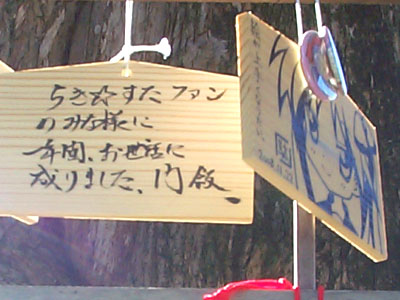 らき☆すたファン
のみな様に
一年間、お世話に
成りました、門飯、